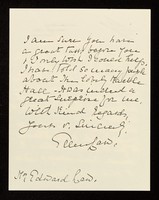 I am sure you have
a great task before you
& I only wish I could help.
I have told so many people
about the lovely
Hall. It was indeed a
great for me.
With kind regards
Yours v. Sincerely
Ellen
Mr Edward